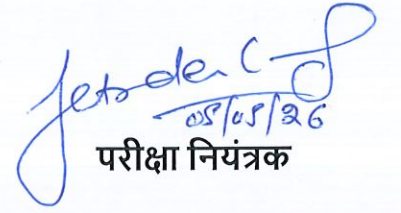 05/05/26
परीक्षा नियंत्रक